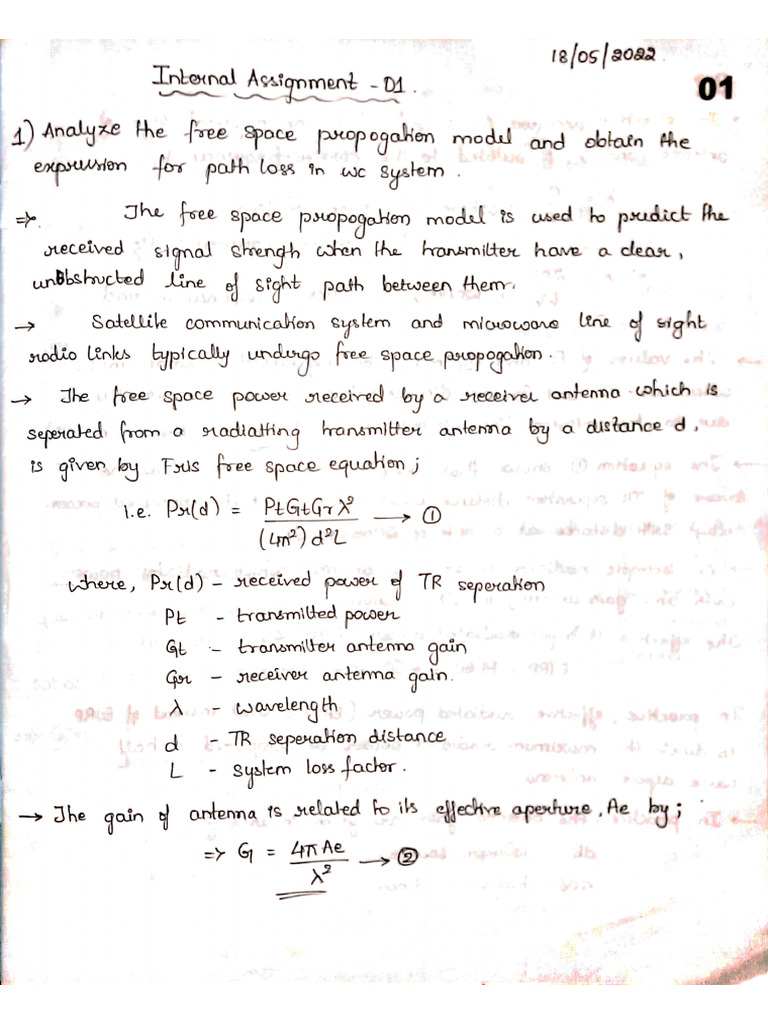 18/05/2022
Internal Assignment -01.
01
1) Analyze the free space propogation model and obtain the
expression for path loss in wc system.
=> The free space propogation model is used to predict the
received signal strength when the transmitter have a clear,
unobstructed line of sight path between them.
→ Satellite communication system and microwave line of sight
radio links typically undergo free space propogation.
→ The free space power received by a receiver antenna which is
seperated from a radiatting transmitter antenna by a distance d,
is given by Friis free space equation;
i.e. Pr(d) = PtGtGrλ² / (4π²)d²L → ①
where, Pr(d) - received power of TR seperation
Pt - transmitted power
Gt - transmitter antenna gain
Gr - receiver antenna gain.
λ - wavelength
d - TR seperation distance
L - system loss factor.
→ The gain of antenna is related to its effective aperture, Ae by;
=> G = 4πAe / λ² → ②